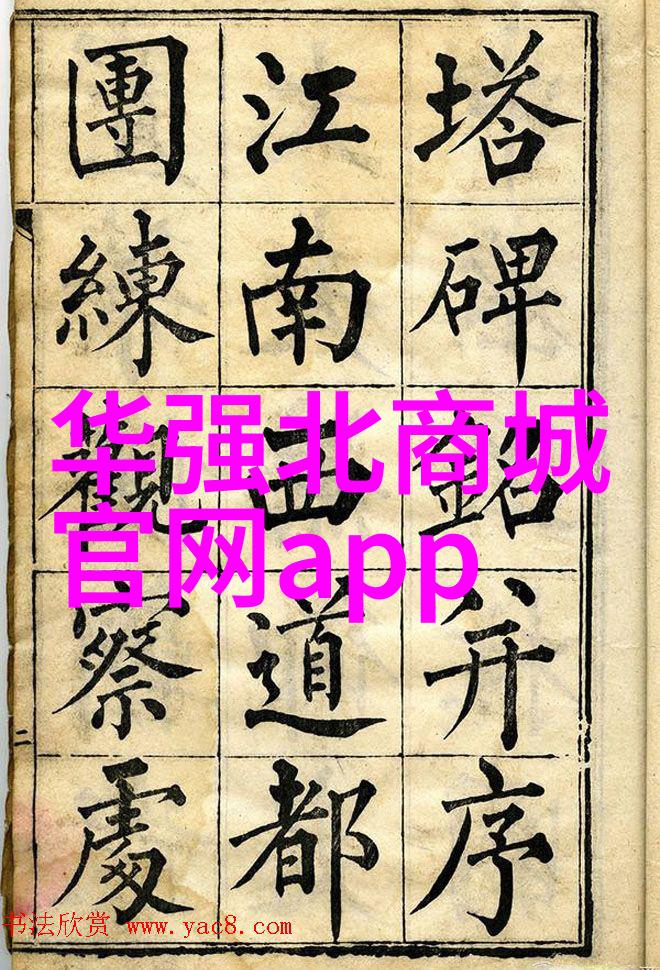 塔碑銘并序
江南西道都
團練觀察處
二
华强北商城
官网app
书法欣赏 www.yac8.com